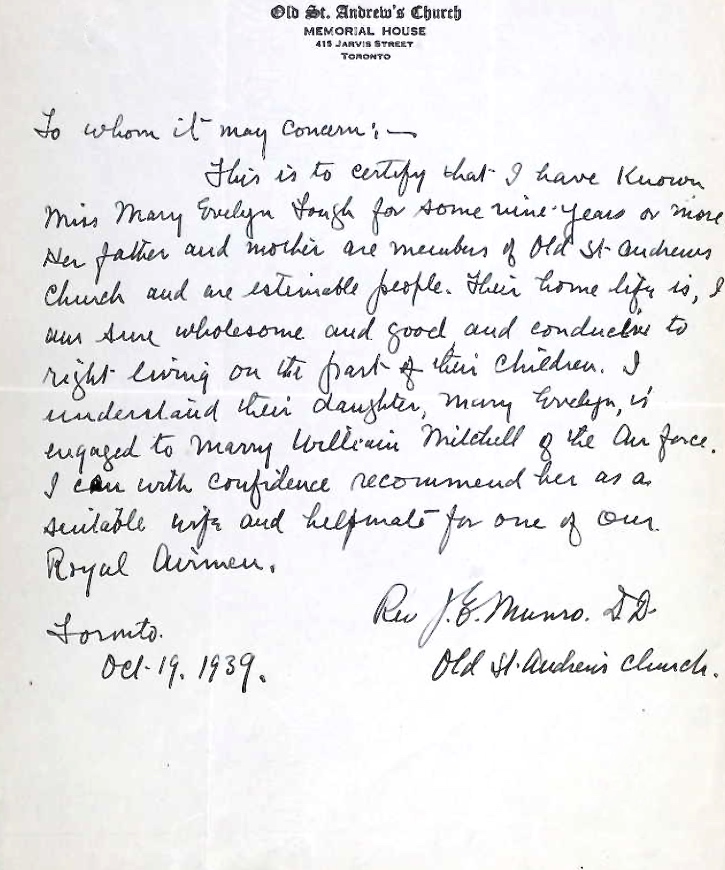 Old St. Andrew's Church
MEMORIAL HOUSE
415 JARVIS STREET
TORONTO
To whom it may concern:—
This is to certify that I have Known
Miss Mary Evelyn Tough for some nine years or more
Her father and mother are members of Old St. Andrews
Church and are estimable people. Their home life is, I
am sure wholesome and good and conducive to
right living on the part of their children. I
understand their daughter, Mary Evelyn, is
engaged to marry William Mitchell of the Air force.
I can with confidence recommend her as a
suitable wife and helpmate for one of our
Royal Airmen.
Rev J. E. Munro. D.D.
Toronto.
Old St. Andrew's Church.
Oct. 19, 1939.